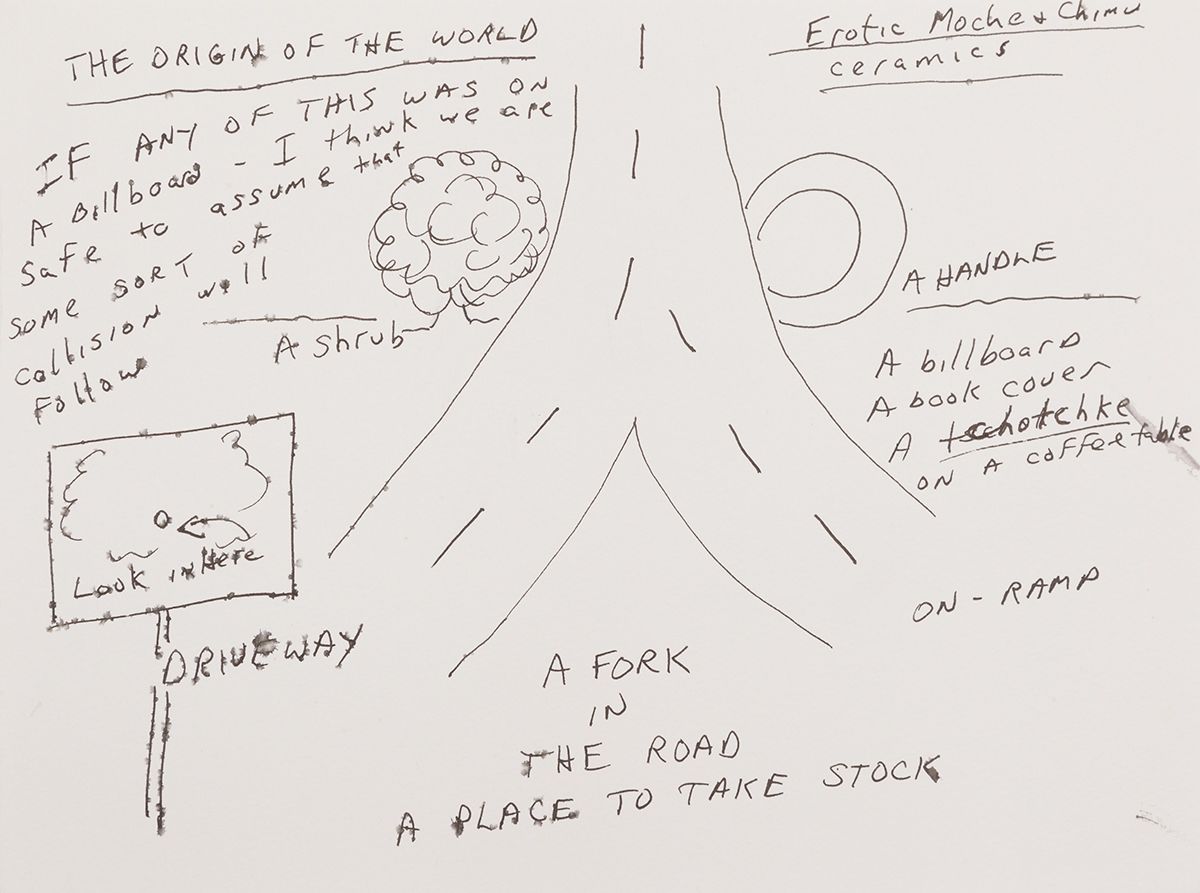 THE ORIGIN OF THE WORLD
IF ANY OF THIS WAS ON
A Billboard - I think we are
safe to assume that
some sort of
collision will
follow
A shrub
Look in Here
DRIVEWAY
Erotic Moche & Chimu
ceramics
A HANDLE
A billboard
A book cover
A tschotchke
ON A coffee table
ON-RAMP
A FORK
IN
THE ROAD
A PLACE TO TAKE STOCK